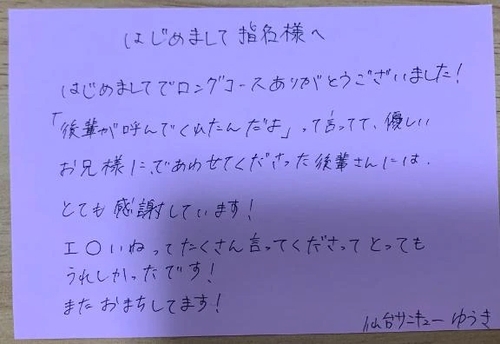 はじめまして指名様へ
はじめましてでロングコースありがとうございました!
「後輩が呼んでくれたんだよ」って言ってて、優しい
お兄様に、であわせてくださった後輩さんには、
とても感謝しています!
エ〇いねってたくさん言ってくださってとっても
うれしかったです!
またおまちしてます!
仙台サンキュー ゆうき